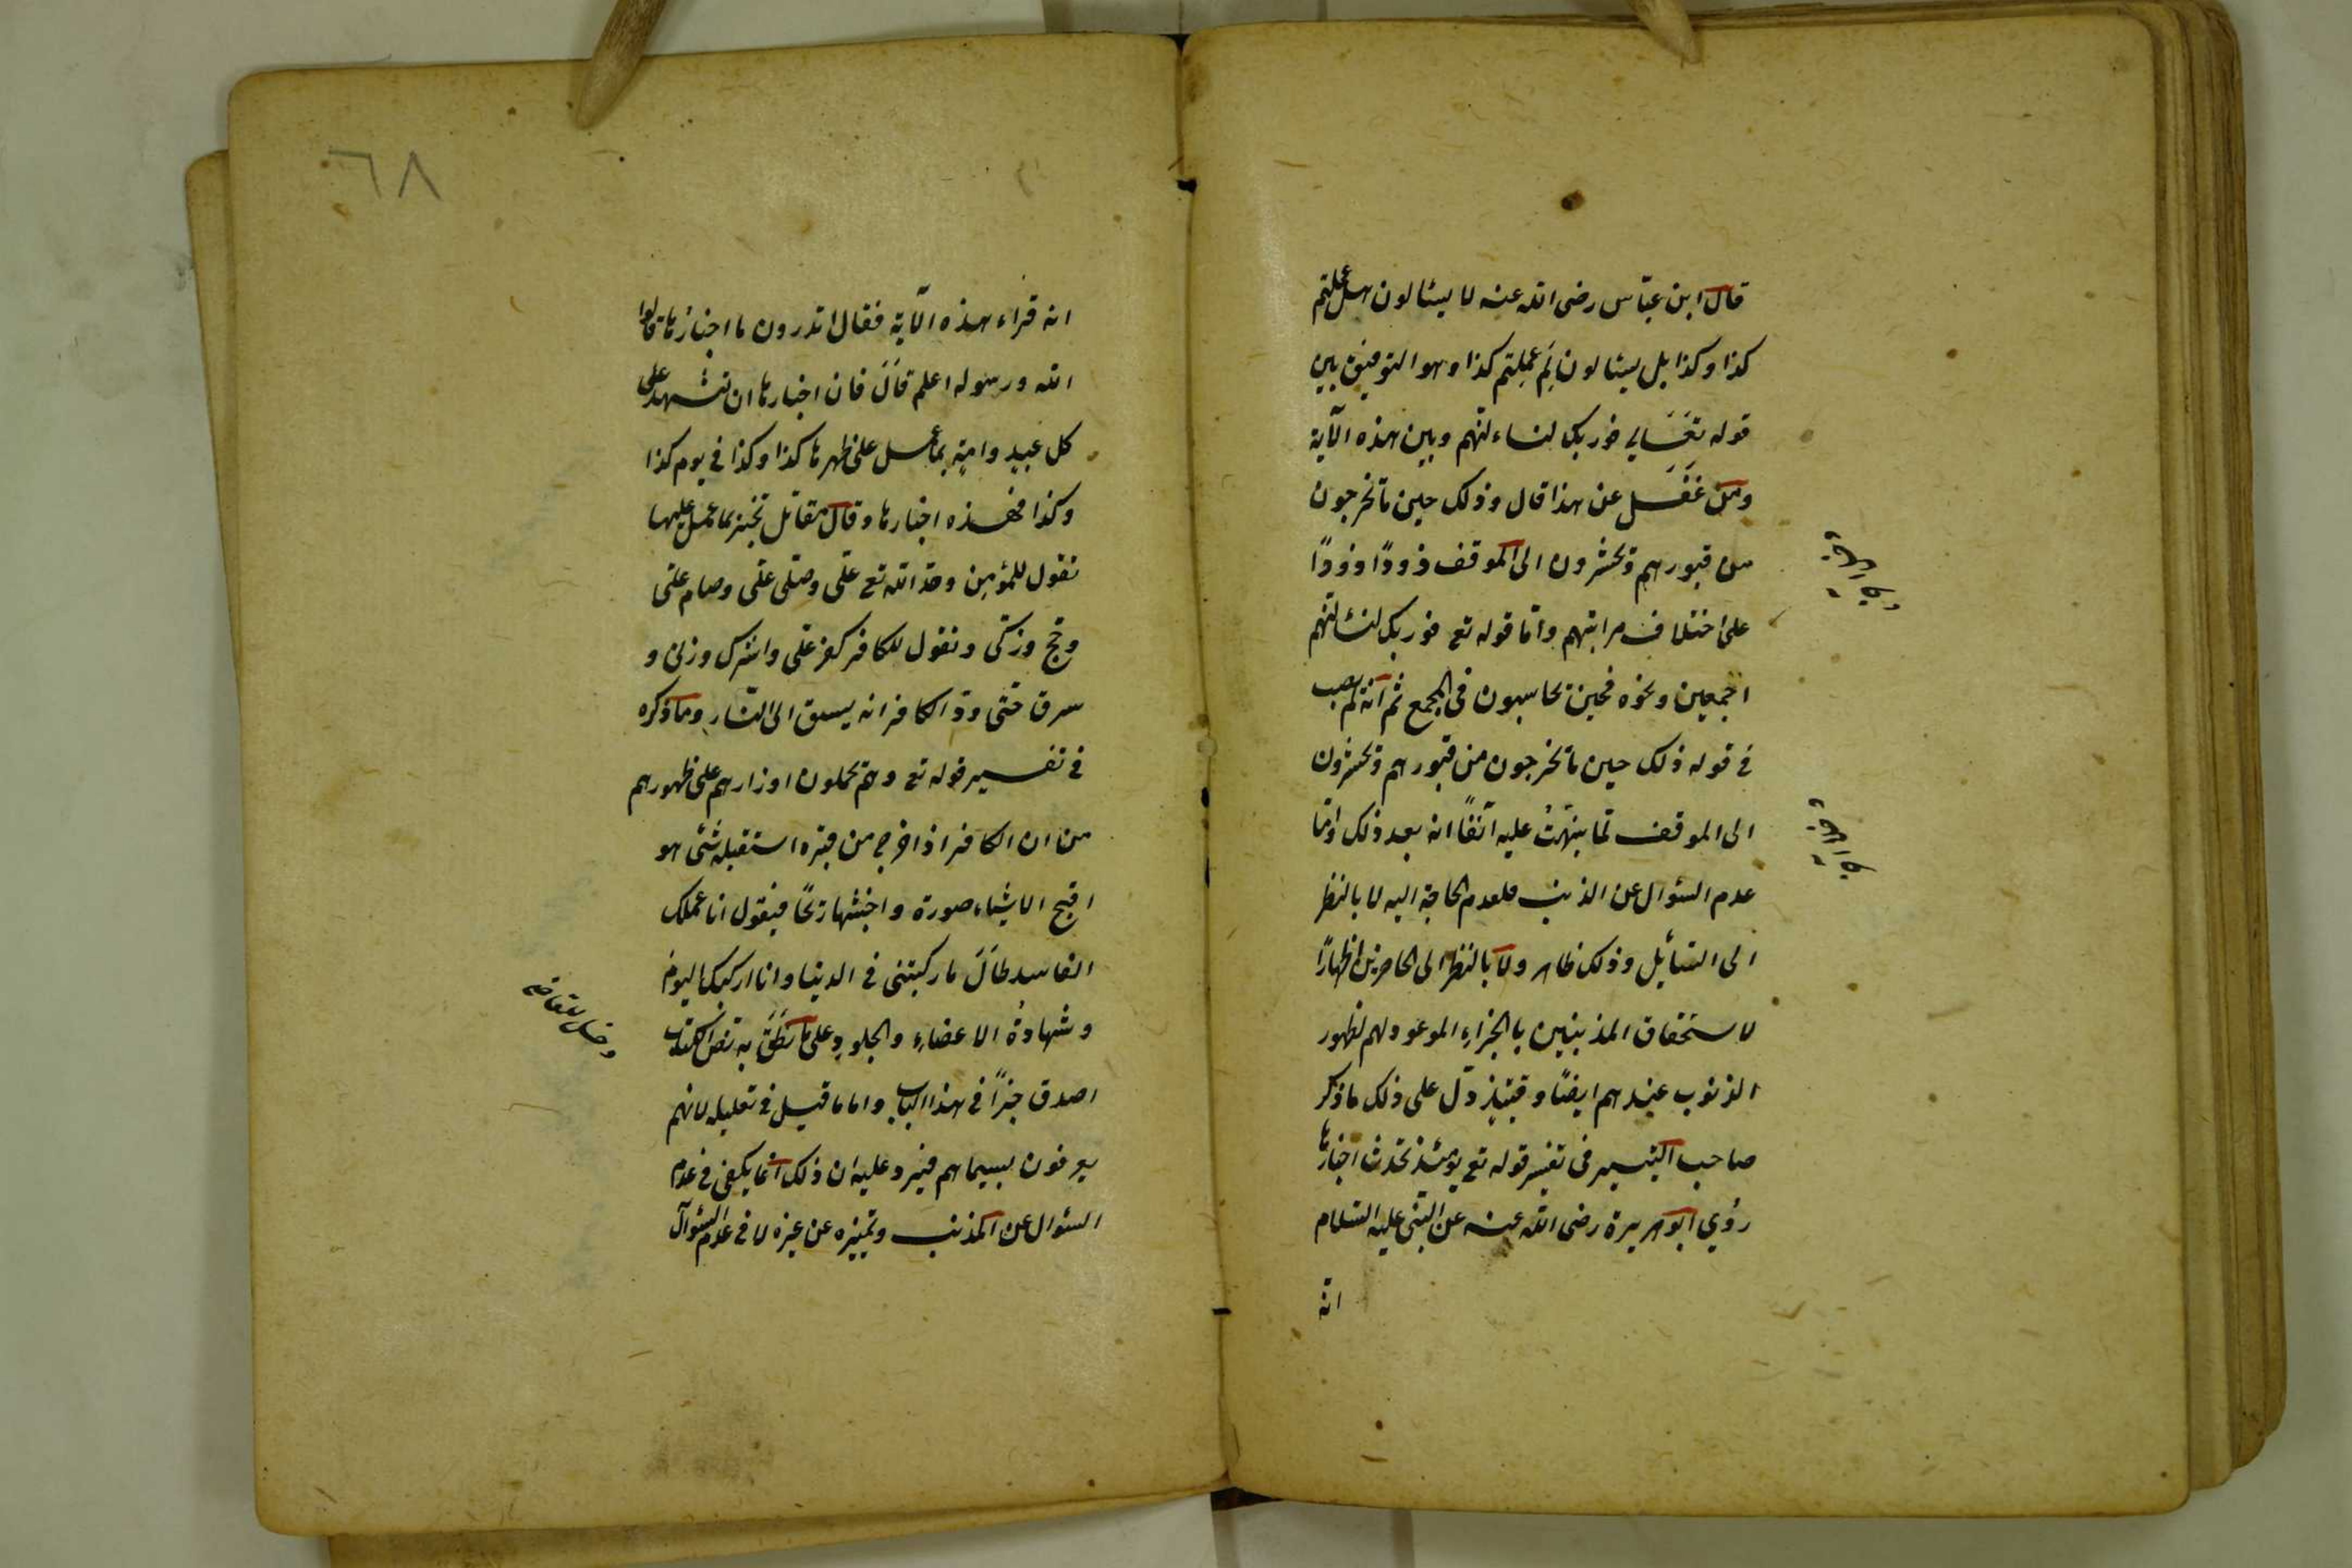 قال ابن عباس رضى الله عنه لا يسئالون هل عملتم
كذا وكذا بل يسئالون لم عملتم كذا وهو التوفيق بين
قوله تعالى فوربك لنساءلنهم وبين هذه الآية
ومن غفل عن هذا قال وذلك حين ما تخرجون
من قبورهم وتحشرون الى الموقف ذودًا ذودًا
على اختلاف مراتبهم واما قوله تع فوربك لنسئالنهم
اجمعين ونحوه فحين تحاسبون فى المجمع ثم انه لم يصب
فى قوله ذلك حين ما تخرجون من قبورهم وتحشرون
الى الموقف لما نبهتُ عليه آنفًا انه بعد ذلك واما
عدم السئوال عن الذنب فلعدم الحاجة اليه لا بالنظر
الى السائل وذلك ظاهر ولا بالنظر الى الحاضرين اظهارًا
لاستحقاق المذنبين بالجزاء الموعود لهم لظهور
الذنوب عندهم ايضًا وقتئذ دل على ذلك ما ذكر
صاحب التيسير فى تفسير قوله تع يومئذ تحدث اخبارها
روى ابو هريرة رضى الله عنه عن النبى عليه السلام
انه
٦٨
انه قراء هذه الآية فقال اتدرون ما اخبارها قالوا
الله ورسوله اعلم قال فان اخبارها ان تشهد على
كل عبد وامة بما عمل على ظهرها كذا وكذا فى يوم كذا
وكذا فهذه اخبارها وقال مقاتل تخبر بما عمل عليها
تقول للمؤمن وحد الله تع على وصلى على وصام على
وحج وزكى وتقول للكافر كفر على واشرك وزنى و
سرق حتى ود الكافر انه يسبق الى النار وما ذكره
فى تفسير قوله تع وهم يحملون اوزارهم على ظهورهم
من ان الكافر اذا خرج من قبره استقبله شئ هو
اقبح الاشياء صورة واخبثها ريحًا فيقول انا عملك
الفاسد طال ما ركبتنى فى الدنيا وانا اركبك اليوم
وشهادةُ الاعضاء والجلود على ما نطق به نص الكتاب
اصدق خبرًا فى هذا الباب واما ما قيل فى تعليله لانهم
يعرفون بسيماهم فيرد عليه ان ذلك انما يكفى فى عدم
السئوال عن المذنب وتمييزه عن غيره لا فى عدم السئوال